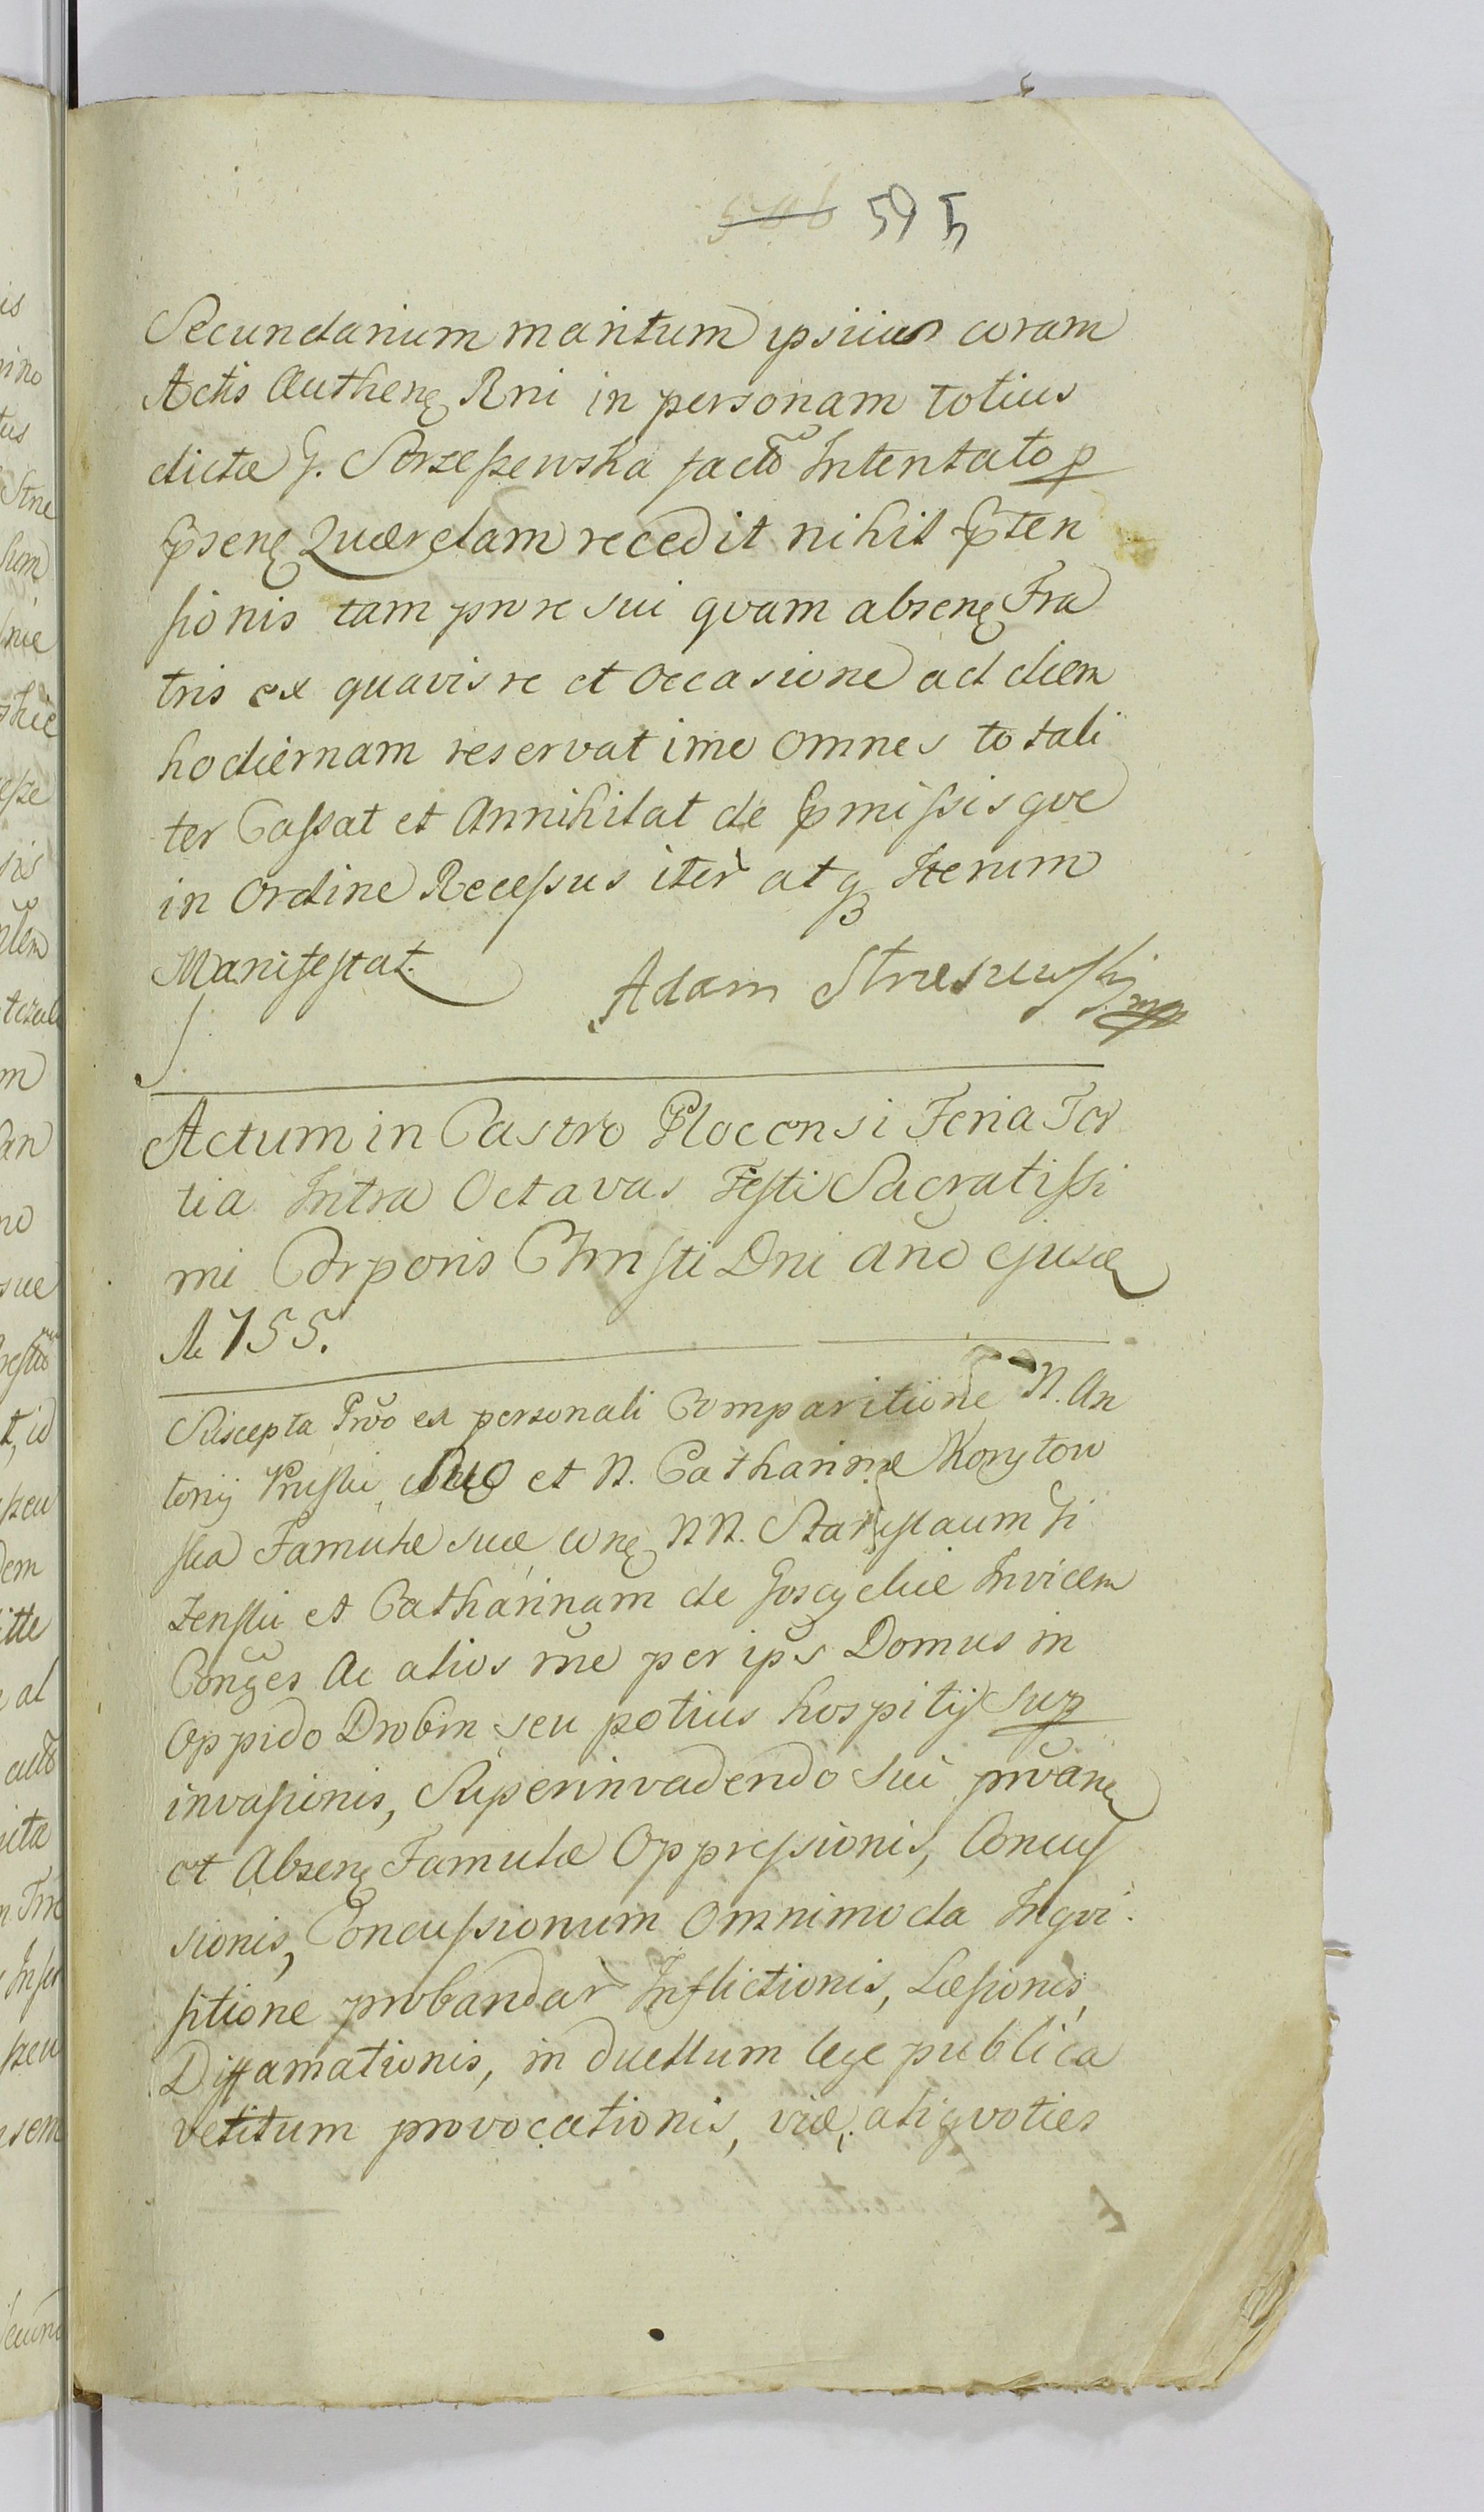 595
Secundarium maritum ipsius coram
Actis Authene Rni in personam totius
dictæ G. Strzeszewska facto Intentato p
Psene Quærelam recedit nihil Pten
sionis tam pro re sui quam absene Fra
tris ex quavis re et occasione ad diem
hodiernam reservat imo omnes totali
ter Cassat et Annihilat de Pmissisque
in Ordine Recessus iter atq Iterum
Manifestat.
Adam Strzeszewski mp
Actum in Castro Plocensi Feria Ter
tia Intra Octavas Festi Sacratissi
mi Corporis Christi Dni año ejusd
M 755.
Suscepta Prõo ex personali Comparitione N. An
tonij Pruski suo et N. Catharinæ Korytow
ska Famulæ suæ cone NN. Stanislaum
et Catharinam de Invicem
Conges Ac alios rne per ips Domus in
Oppido Drobin seu potius hospitij sup
invasionis, Superinvadendo sui
et Absene Famulæ Oppressionis, Concus
sionis, Concussionum Omnimoda Inqvi
sitione probandar Inflictionis, Læsionis,
Diffamationis, in duellum lege publica
vetitum provocationis, viæ, aliqvoties